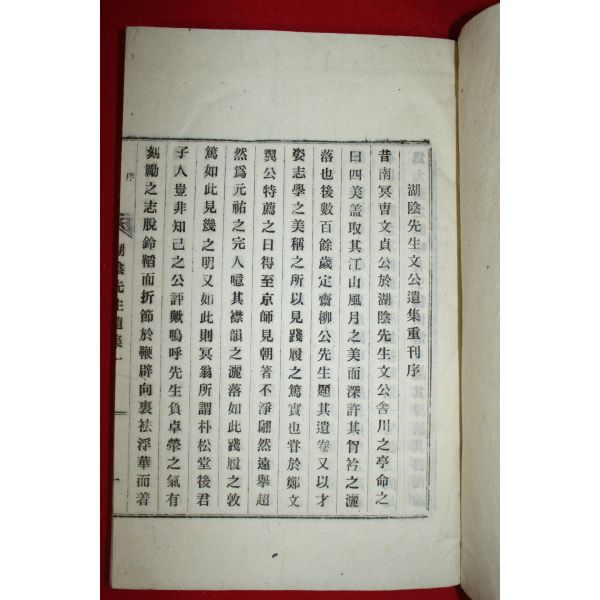 湖陰先生文公遺集重刊序
昔南冥曺文貞公於湖陰先生文公舎川之亭命之
曰四美盖取其江山風月之美而深許其胷衿之灑
落也後數百餘歲定齋柳公先生題其遺卷又以才
姿志學之美稱之所以見踐履之篤實也甞於鄭文
翼公特薦之日得至京師見朝著不淨翩然遠擧超
然爲元祐之完人噫其襟韻之灑落如此踐履之敦
篤如此見幾之明又如此則冥翁所謂朴松堂後君
子人豈非知己之公評歟嗚呼先生負卓犖之氣有
刻勵之志脫鈴韜而折節於鞭辟向裏袪浮華而着
序
湖陰先生遺集一
一